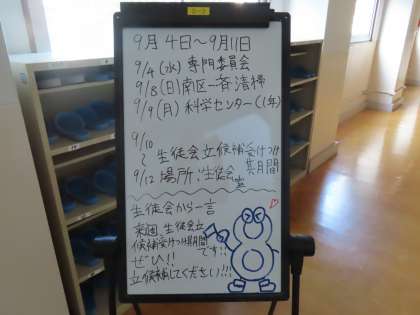 9月4日～9月11日
9/4(水)専門委員会
9/8(日)南区一斉清掃
9/9(月)科学センター(1年)
9/10 生徒会立候補受けつけ
～ 期間
9/12 場所：生徒会室
生徒会から一言
来週、生徒会立
候補受けつけ期間
です!!
ぜひ!!
立候補してください!!!